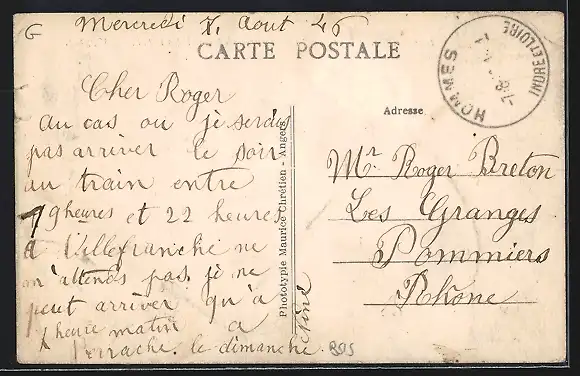 G
Mercredi 7. Aout 46
CARTE POSTALE
HOMMES
INDRE ET LOIRE
Cher Roger
au cas ou je serdis
pas arriver le soir
au train entre
19 heures et 22 heures
a Villefranche ne
m'attends pas. je ne
peut arriver qu'a
1 heure matin a
Perrache. le dimanche.
Phototypie Maurice Chrétien - Angers
Adresse
Mr. Roger Breton
Les Granges
Pommiers
Rhône